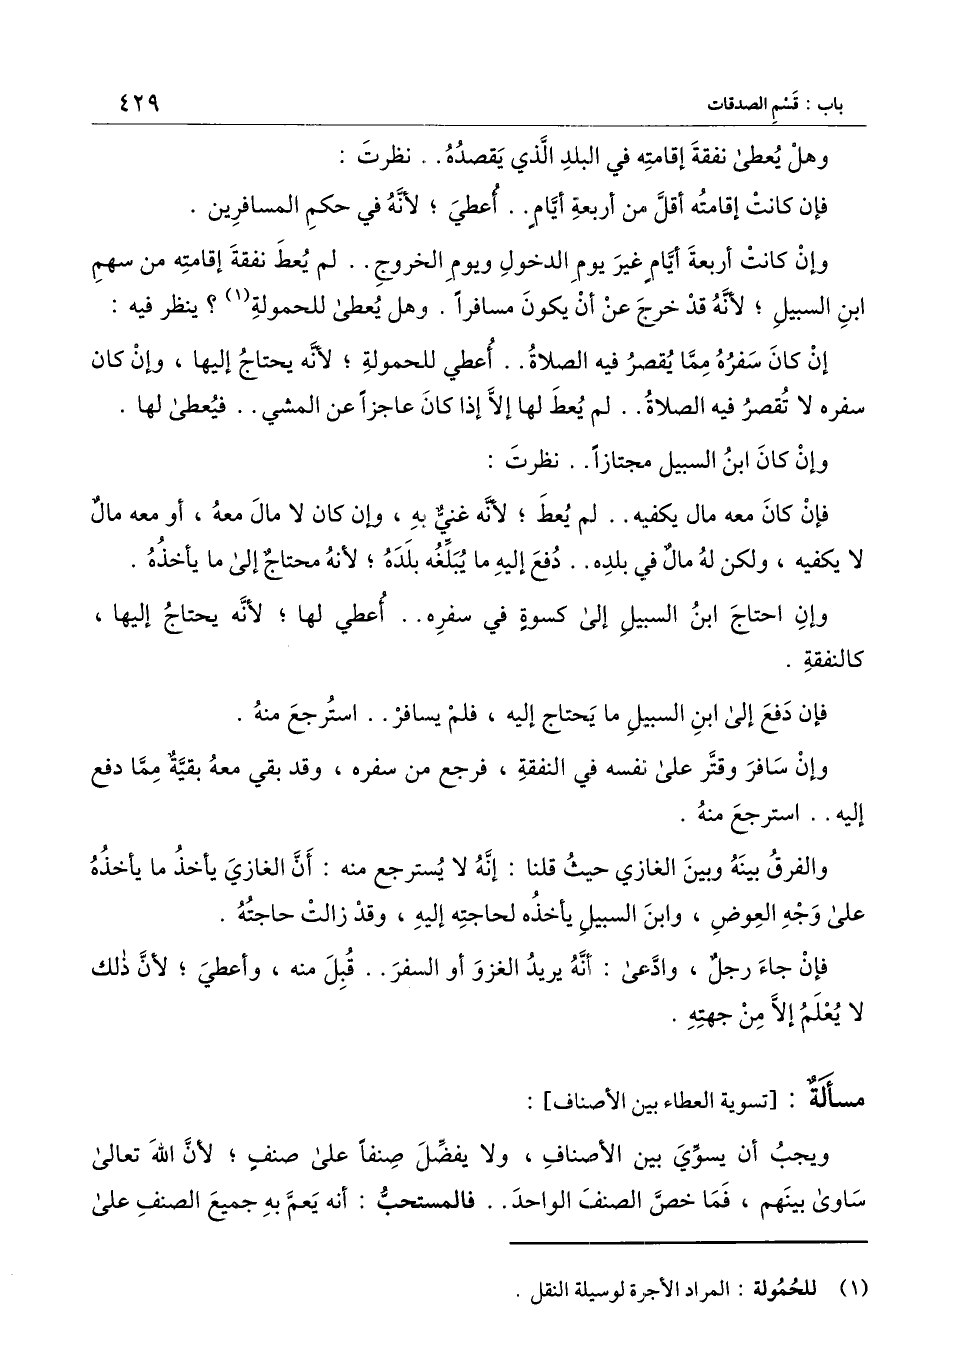 باب : قَسْمِ الصدقات ٤٢٩
وهلْ يُعطىٰ نفقةَ إقامتِه في البلدِ الَّذي يَقصدُهُ . . نظرتَ :
فإن كانتْ إقامتُه أقلَّ من أربعةِ أيَّامٍ . . أُعطيَ ؛ لأنَّهُ في حكمِ المسافرِين .
وإنْ كانتْ أربعةَ أيَّامٍ غيرَ يومِ الدخولِ ويومِ الخروجِ . . لم يُعطَ نفقةَ إقامتِه من سهمِ
ابنِ السبيلِ ؛ لأنَّهُ قدْ خرجَ عنْ أنْ يكونَ مسافراً . وهل يُعطىٰ للحمولةِ(١) ؟ ينظر فيه :
إنْ كانَ سَفرُهُ مِمَّا يُقصرُ فيه الصلاةُ . . أُعطي للحمولةِ ؛ لأنَّه يحتاجُ إليها ، وإنْ كان
سفره لا تُقصرُ فيه الصلاةُ . . لم يُعطَ لها إلاَّ إذا كانَ عاجزاً عن المشي . . فيُعطىٰ لها .
وإنْ كانَ ابنُ السبيل مجتازاً . . نظرتَ :
فإنْ كانَ معه مال يكفيه . . لم يُعطَ ؛ لأنَّه غنيٌّ بهِ ، وإن كان لا مالَ معهُ ، أو معه مالٌ
لا يكفيه ، ولكن لهُ مالٌ في بلدِه . . دُفعَ إليهِ ما يُبَلِّغُه بلَدَهُ ؛ لأنهُ محتاجٌ إلىٰ ما يأخذُهُ .
وإنِ احتاجَ ابنُ السبيلِ إلىٰ كسوةٍ في سفرِه . . أُعطي لها ؛ لأنَّه يحتاجُ إليها ،
كالنفقةِ .
فإن دَفعَ إلىٰ ابنِ السبيلِ ما يَحتاج إليه ، فلمْ يسافرْ . . استُرجعَ منهُ .
وإنْ سَافرَ وقتَّر علىٰ نفسه في النفقةِ ، فرجع من سفره ، وقد بقي معهُ بقيَّةٌ مِمَّا دفع
إليه . . استرجعَ منهُ .
والفرقُ بينَهُ وبينَ الغازي حيثُ قلنا : إنَّهُ لا يُسترجع منه : أنَّ الغازيَ يأخذُ ما يأخذُهُ
علىٰ وَجْهِ العِوضِ ، وابنَ السبيلِ يأخذُه لحاجتِه إليهِ ، وقدْ زالتْ حاجتُهُ .
فإنْ جاءَ رجلٌ ، وادَّعىٰ : أنَّهُ يريدُ الغزوَ أو السفرَ . . قُبِلَ منه ، وأعطيَ ؛ لأنَّ ذٰلك
لا يُعْلَمُ إلاَّ مِنْ جهتِهِ .
مسأَلَةٌ : [تسوية العطاء بين الأصناف] :
ويجبُ أن يسوِّيَ بين الأصنافِ ، ولا يفضِّلَ صِنفاً علىٰ صنفٍ ؛ لأنَّ اللهَ تعالىٰ
سَاوىٰ بينَهم ، فَمَا خصَّ الصنفَ الواحدَ . . فالمستحبُّ : أنه يَعمَّ بهِ جميعَ الصنفِ علىٰ
(١) للحُمُولة : المراد الأجرة لوسيلة النقل .